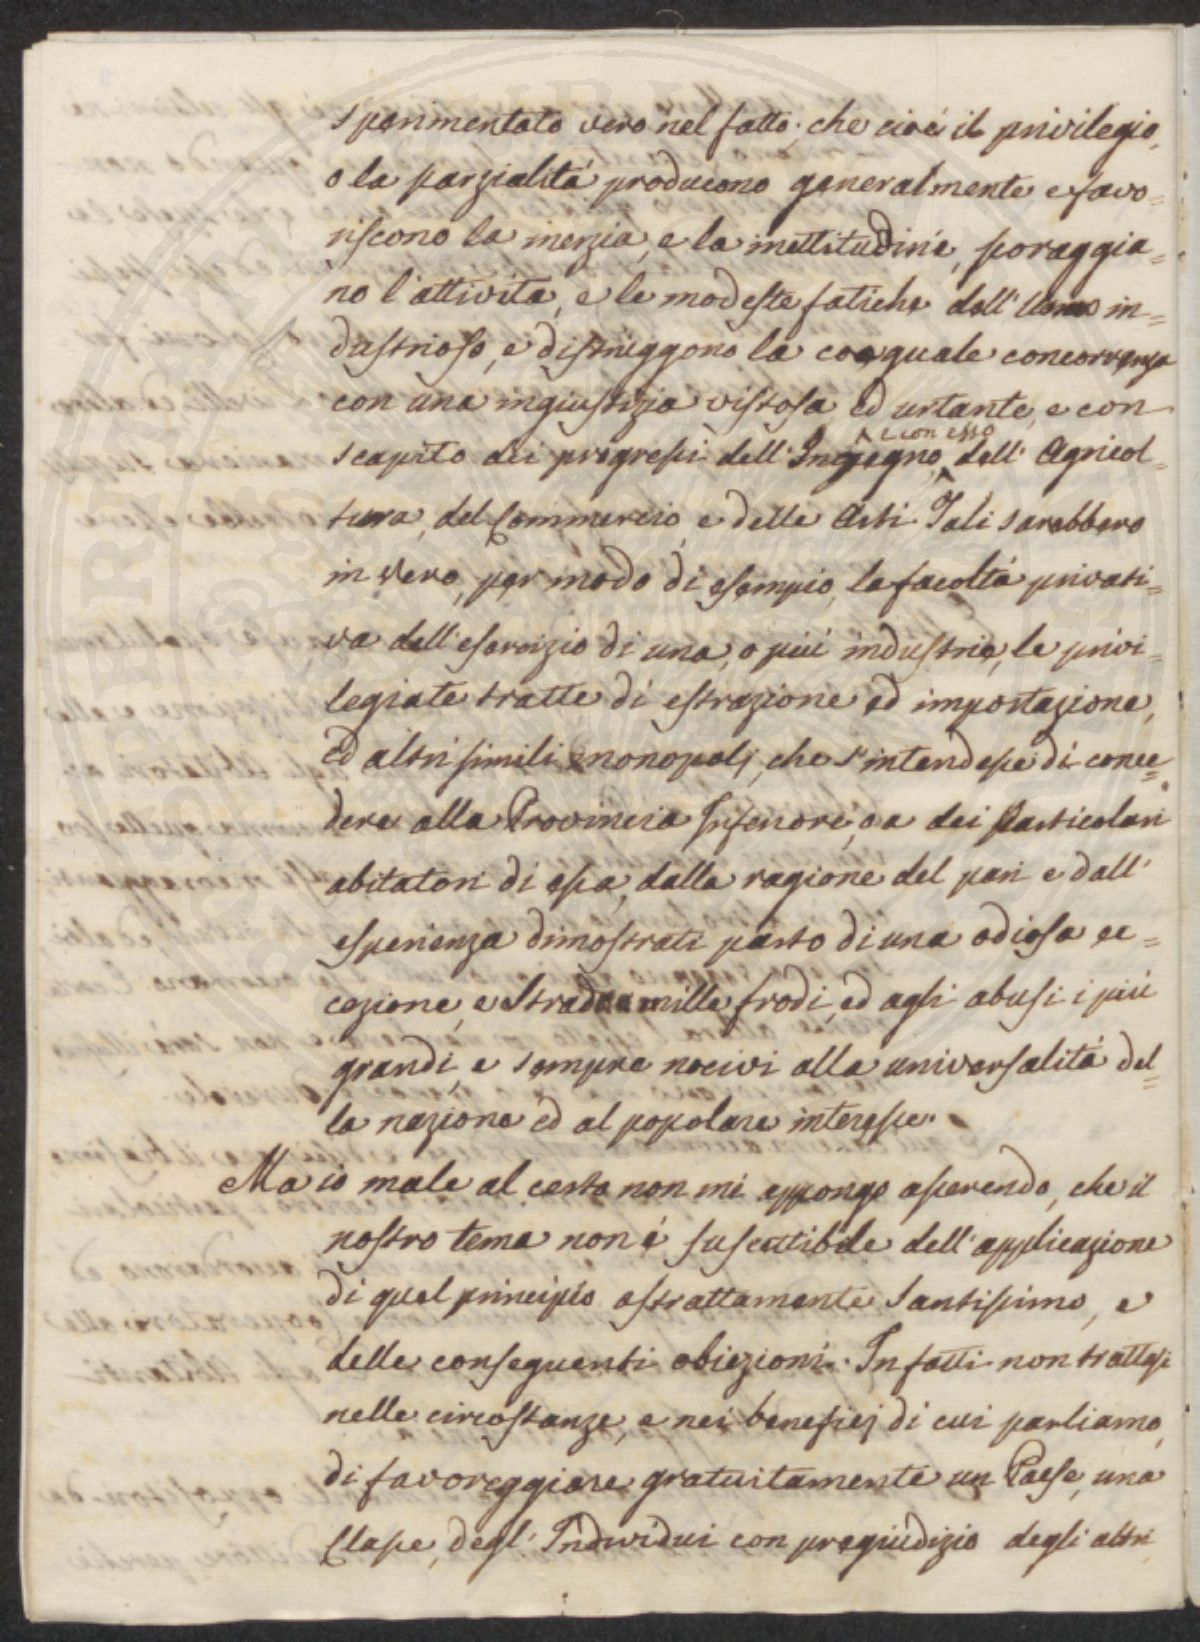 sperimentato vero nel fatto; che cioè il privilegio,
o la parzialità producono generalmente e favo=
riscono la inerzia, e la inettitudine, scoraggia=
no l'attività, e le modeste fatiche dell'Uomo in=
dustrioso, e distruggono la coeguale concorrenza
con una ingiustizia vistosa, ed urtante, e con
e con esso
scapito dei progressi dell'Ingegno, dell'Agricol=
tura, del Commercio, e delle Arti. Tali sarebbero
in vero, per modo di esempio, la facoltà privati=
va dell'esercizio di una, o più industrie, le privi=
legiate tratte di estrazione ed importazione,
ed altri simili monopolj, che s'intendesse di conce=
dere alla Provincia Inferiore, o a dei Particolari
abitatori di essa, dalla ragione del pari e dall'
esperienza dimostrati parto di una odiosa ec=
cezione, e Strada a mille frodi, ed agli abusi i più
grandi, e sempre nocivi alla universalità del=
la nazione ed al popolare interesse.
Ma io male al certo non mi appongo asserendo, che il
nostro tema non è suscettibile dell'applicazione
di quel principio astrattamente Santissimo, e
delle conseguenti obiezioni. Infatti non trattasi
nelle circostanze, e nei beneficj di cui parliamo,
di favoreggiare gratuitamente un Paese, una
Classe, degl'Individui con pregiudizio degli altri